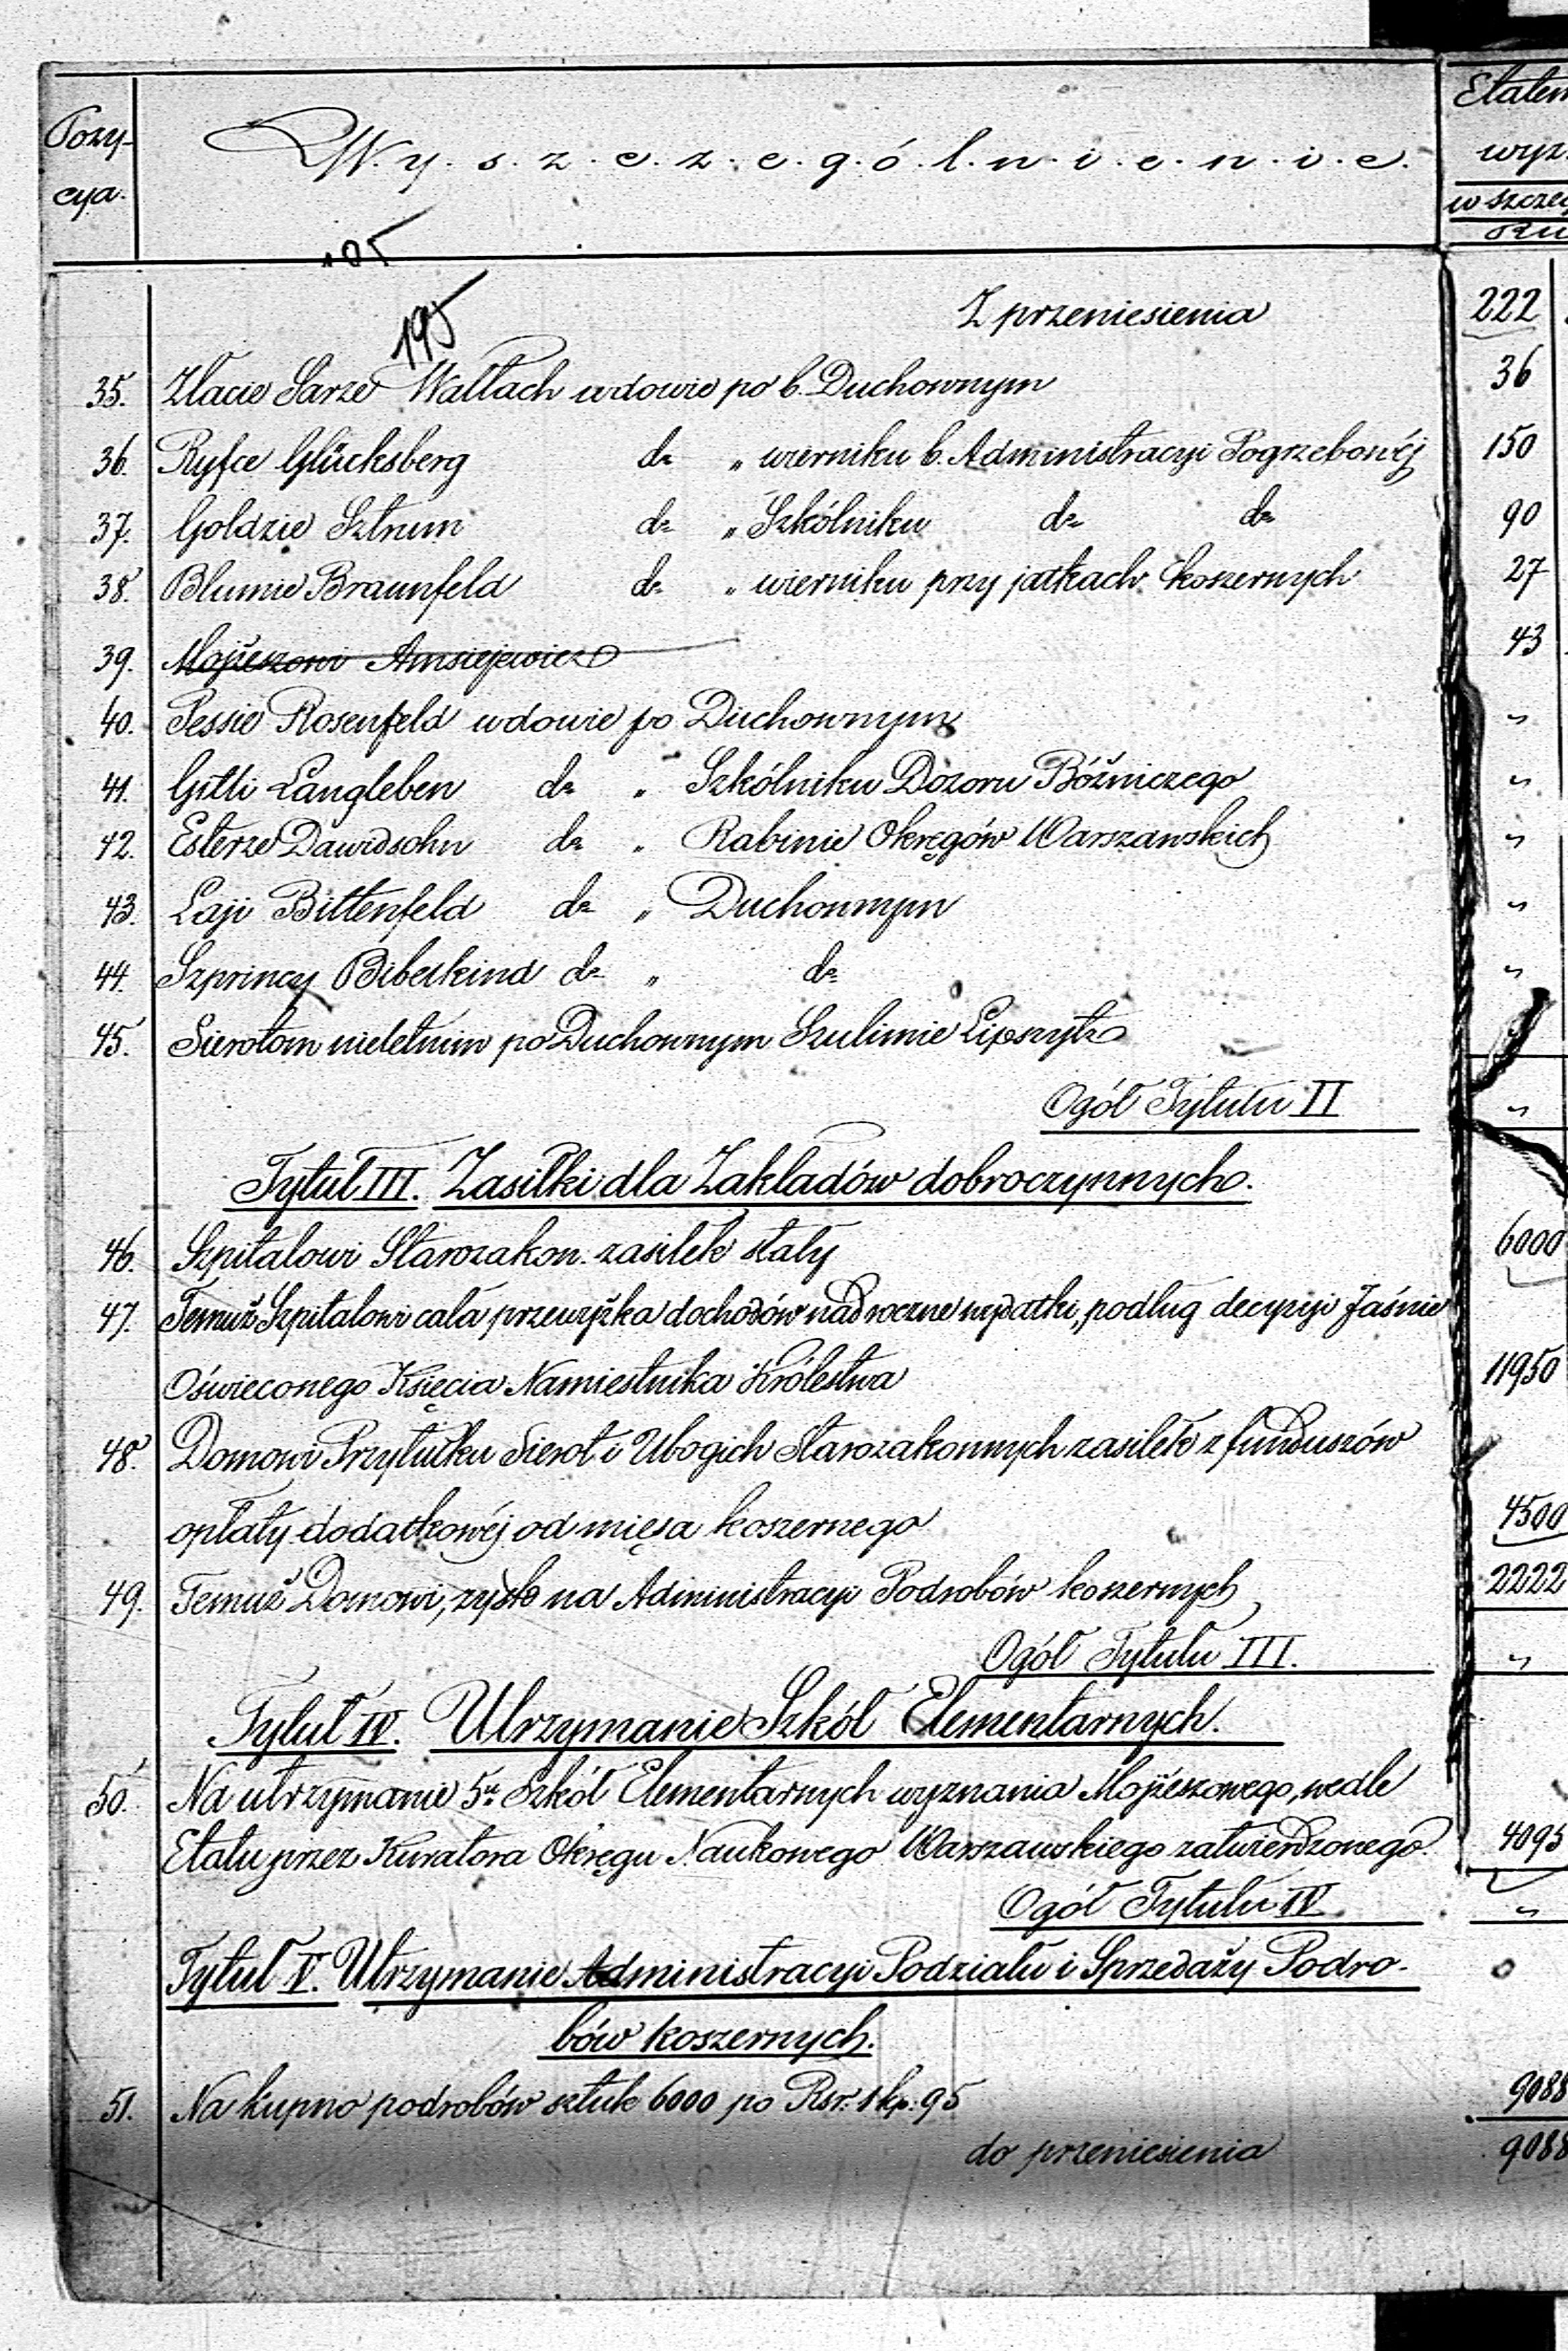 Pozy-
cya.
W.y.s.z.c.z.e.g.ó.l.n.i.e.n.i.e.
Etatem
wyz
w szczeg
Ru
195
Z przeniesienia 222
35. Zlacie Sarze Wallach wdowie po b. Duchownym 36
36. Ryfce Glücksberg do „ wierniku b. Administracyi Pogrzebowéj 150
37. Goldzie Sztrum do „ Szkólniku do do 90
38. Blumie Braunfeld do „ wierniku przy jatkach koszernych 27
39. Mojżeszowi Amsiejewicz 43
40. Pessie Rosenfeld wdowie po Duchownym „
41. Gitli Langleben do „ Szkólniku Dozoru Bóźniczego „
42. Esterze Dawidsohn do „ Rabinie Okręgów Warszawskich „
43. Łaji Bittenfeld do „ Duchownym „
44. Szprincy Biberkind do „ do „
45. Sierotom nieletnim po Duchownym Szulimie Lipszytz
Ogół Tytułu II „
Tytuł III. Zasiłki dla Zakładów dobroczynnych.
46. Szpitalowi Starozakon. zasiłek stały 6000
47. Temuż Szpitalowi cała przewyżka dochodów nad roczne wydatki, podług decyzyi Jaśnie
Oświeconego Księcia Namiestnika Królestwa 11950
48. Domowi Przytułku Sierot i Ubogich Starozakonnych zasiłek z funduszów
opłaty dodatkowéj od mięsa koszernego 4500
49. Temuż Domowi, zysk na Administracyi Podrobów koszernych 2222
Ogół Tytułu III. „
Tytuł IV. Utrzymanie Szkół Elementarnych.
50. Na utrzymanie 5u Szkół Elementarnych wyznania Mojżeszowego, wedle
Etatu przez Kuratora Okręgu Naukowego Warszawskiego zatwierdzonego. 4095
Ogół Tytułu IV „
Tytuł V. Utrzymanie Administracyi Podziału i Sprzedaży Podro-
bów koszernych.
51. Na kupno podrobów sztuk 6000 po Rsr. 1 kp. 95 9088
do przeniesienia 9088